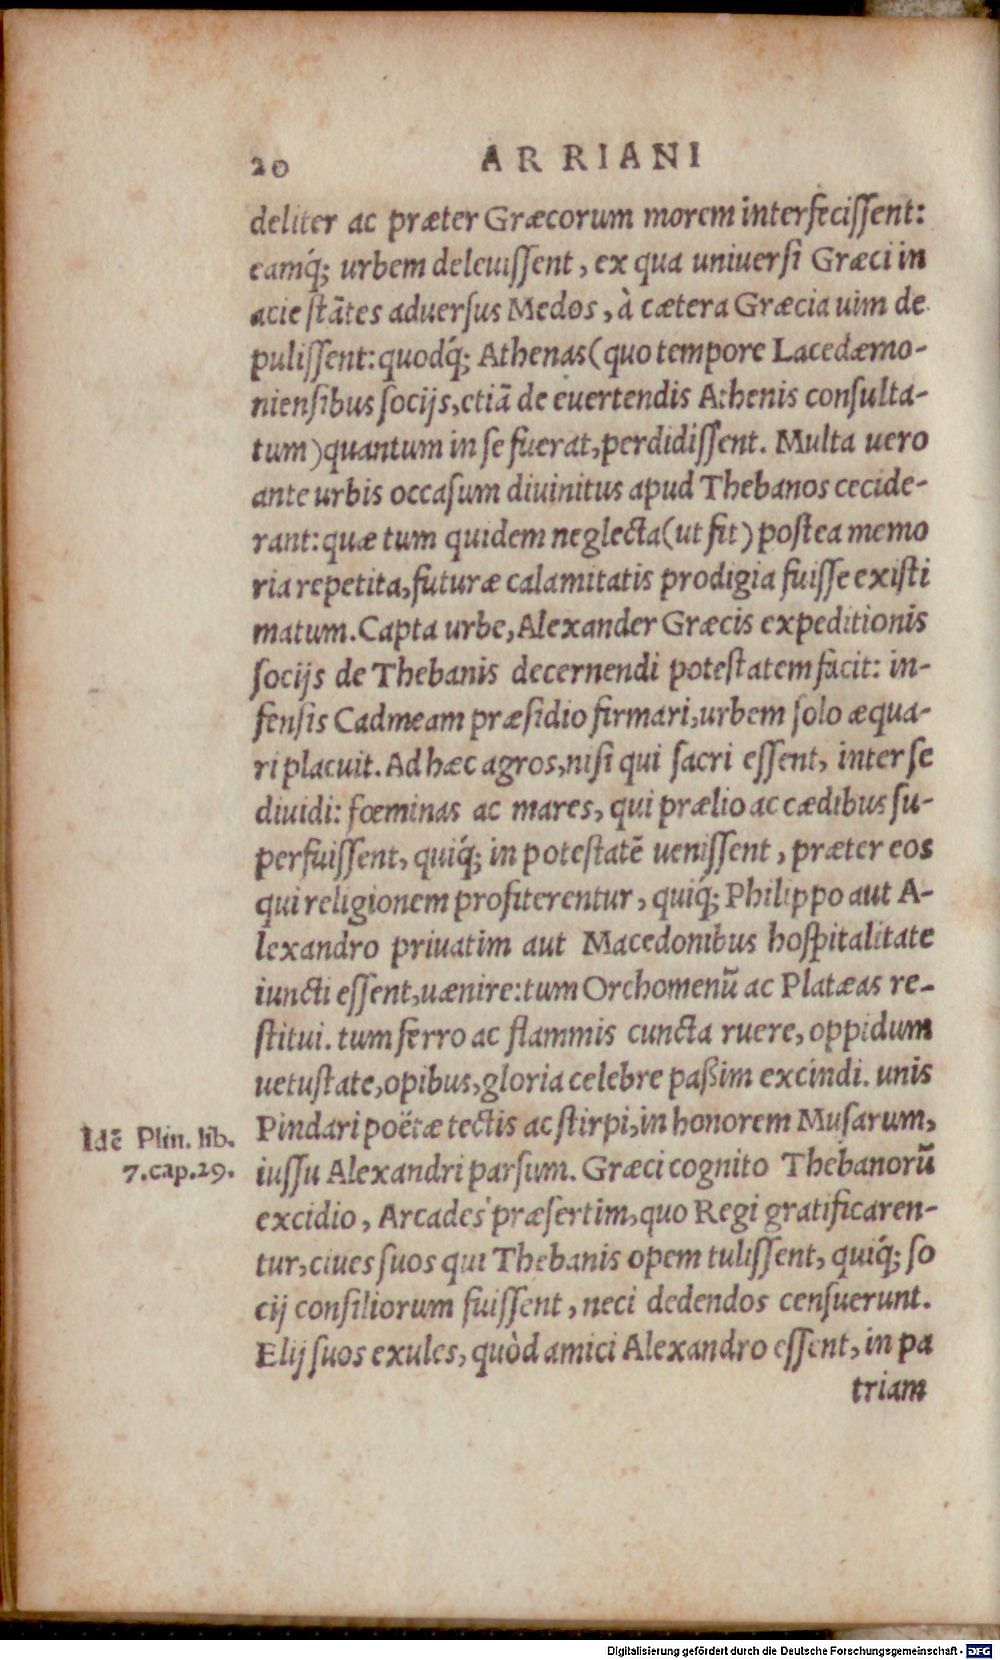 20 ARRIANI
deliter ac præter Græcorum morem interfecissent:
eamq́; urbem deleuissent, ex qua uniuersi Græci in
acie stātes aduersus Medos, à cætera Græcia uim de
pulissent: quodq́; Athenas (quo tempore Lacedæmo-
niensibus socijs, etiā de euertendis Athenis consulta-
tum) quantum in se fuerat, perdidissent. Multa uero
ante urbis occasum diuinitus apud Thebanos cecide-
rant: quæ tum quidem neglecta (ut fit) postea memo
ria repetita, futuræ calamitatis prodigia fuisse existi
matum. Capta urbe, Alexander Græcis expeditionis
socijs de Thebanis decernendi potestatem facit: in-
fensis Cadmeam præsidio firmari, urbem solo æqua-
ri placuit. Ad hæc agros, nisi qui sacri essent, inter se
diuidi: fœminas ac mares, qui prælio ac cædibus su-
perfuissent, quiq́; in potestatē uenissent, præter eos
qui religionem profiterentur, quiq́; Philippo aut A-
lexandro priuatim aut Macedonibus hospitalitate
iuncti essent, uænire: tum Orchomenū ac Platæas re-
stitui. tum ferro ac flammis cuncta ruere, oppidum
uetustate, opibus, gloria celebre paßim excindi. unis
Pindari poëtæ tectis ac stirpi, in honorem Musarum,
Idē Plin. lib.
7. cap. 29.
iussu Alexandri parsum. Græci cognito Thebanorū
excidio, Arcades præsertim, quo Regi gratificaren-
tur, ciues suos qui Thebanis opem tulissent, quiq́; so
cij consiliorum fuissent, neci dedendos censuerunt.
Elij suos exules, quòd amici Alexandro essent, in pa
triam
Digitalisierung gefördert durch die Deutsche Forschungsgemeinschaft - DFG